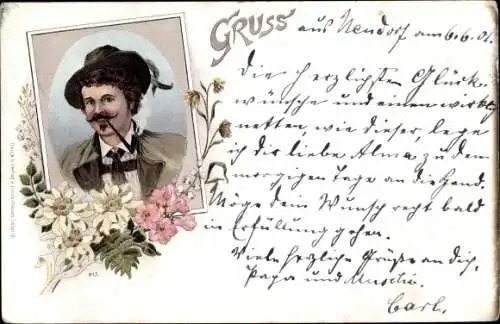 GRUSS aus Nendorf am 6.6.01.
Die herzligsten Glück-
wünsche und einen
netten, wie dieser, lege
ich dir liebe Alma zu dem
morgigen Tage an die Hand.
Möge dein Wunsch recht bald
in Erfüllung gehen.
Viele herzliche Grüße an dich,
Papa und
Carl.